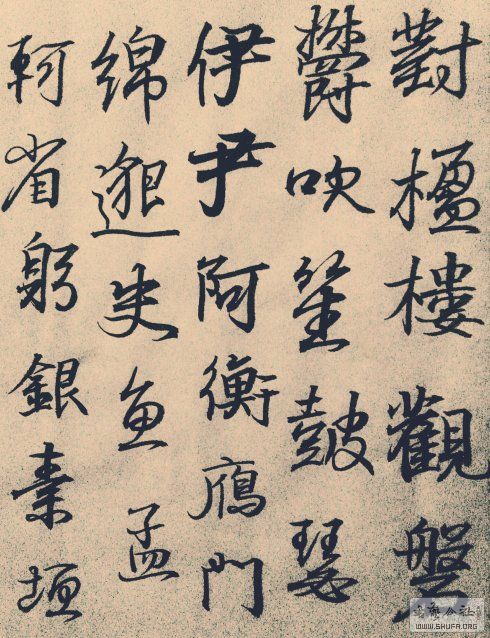 對楹樓觀盤
欝吹笙鼓瑟
伊尹阿衡鴈門
綿邈史魚孟
軻省躬銀素垣
WWW.SHUFA.ORG